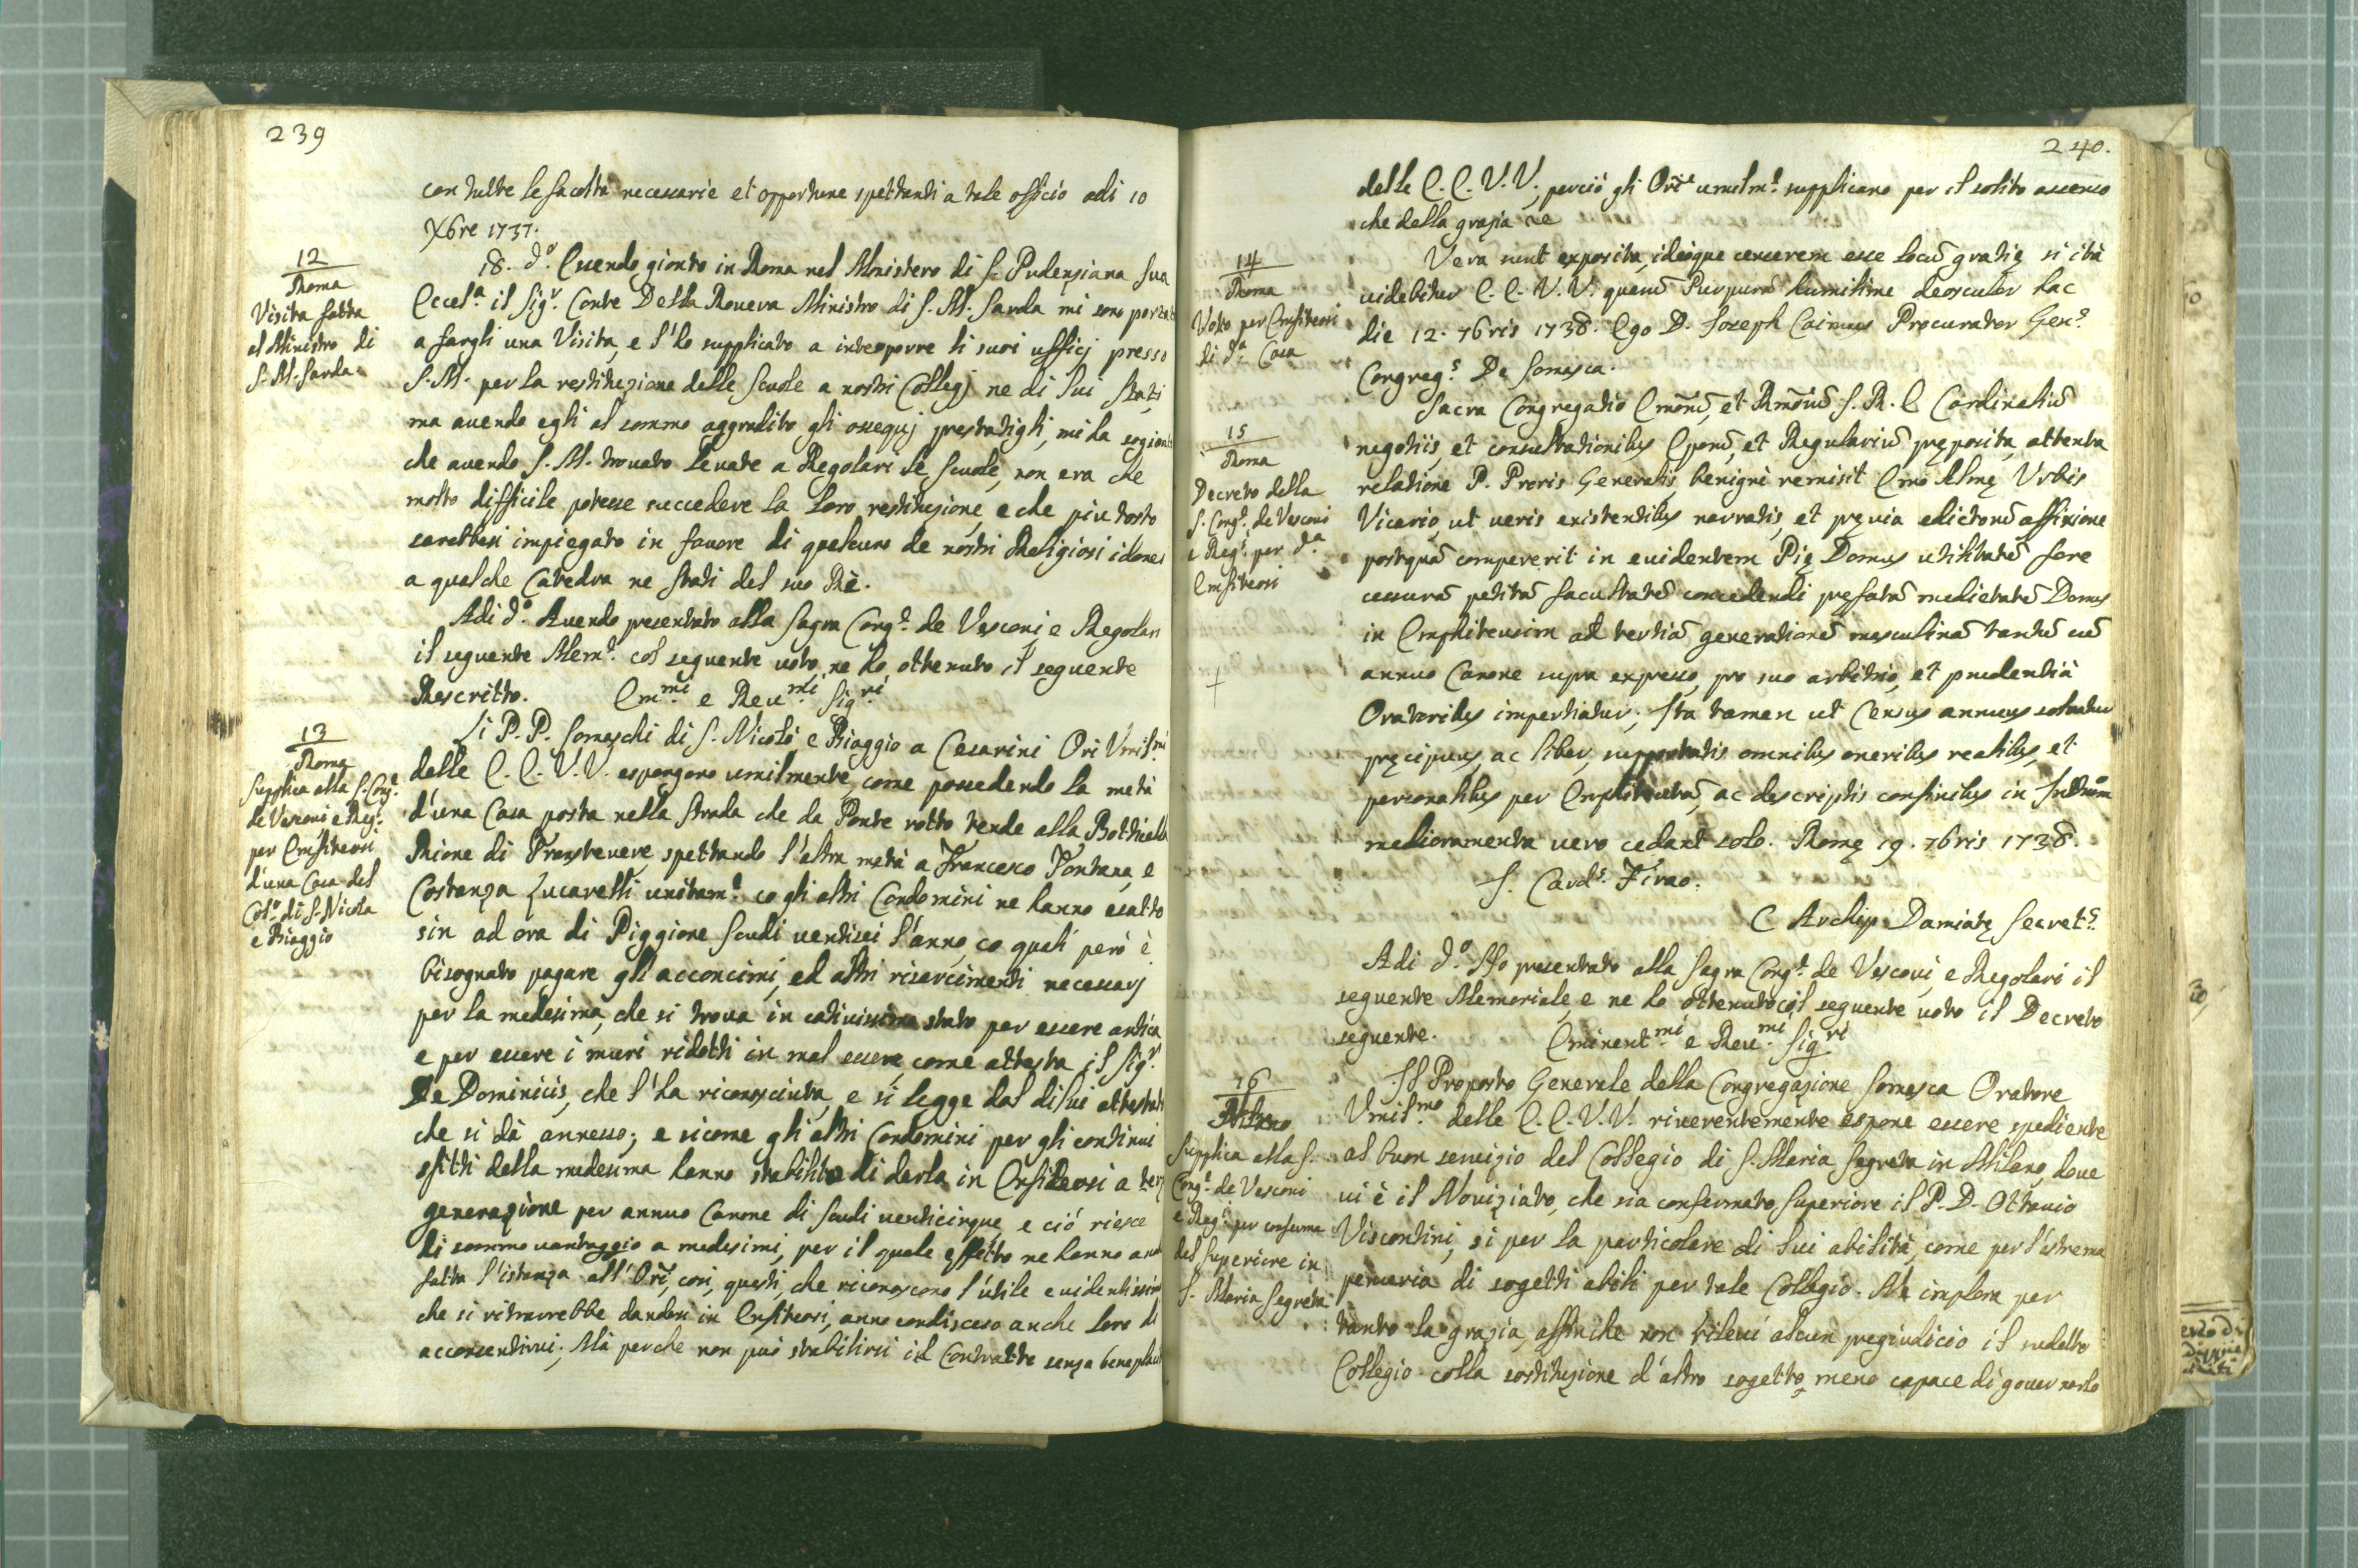 239
con tutte le facoltà necessarie et opportune spettanti a tale officio adi 10
Xbre 1737.
12
Roma
Visita fatta
al Ministro di
S. M. Sarda
18. dº. Essendo gionto in Roma nel Monistero di S. Pudenziana Sua
Eccelª. il Sigr. Conte Della Rovera Ministro di S. M. Sarda mi sono portat
a fargli una Visita, e l'ho supplicato a interporre li suoi ufficj presso
S. M. per la restituzione delle Scuole a nostri Collegj ne di lui Stati
ma avendo egli al sommo aggradito gli ossequj prestatigli, mi ha sogionto
che avendo S. M. trovato levate a Regolari le Scuole, non era che
molto difficile potesse succedere la loro restituzione, e che piu tosto
sarebbesi impiegato in favore di qualcuno de nostri Religiosi idonei
a qualche Catedra ne stati del suo Rè.
Adi dº. Avendo presentato alla Sagra Congne. de Vescovi, e Regolari
il seguente Meml. col seguente voto, ne ho ottenuto il seguente
Rescritto. Emmi. e Revmi. Sigri
13
Roma
Supplica alla S. Cong.
de Vescovi e Reg.
per Enfiteosi
d'una Casa del
Colº. di S. Nicola
e Biaggio
Li P. P. Somaschi di S. Nicolò e Biaggio a Cesarini Ori Umilmi
delle E. E. V. V. espongono umilmente, come possedendo la metà
d'una Casa posta nella Strada che da Ponte rotto tende alla Botticella
Rione di Transtevere, spettando l'altra metà a Francesco Fontana, e
Costanza Zucarelli unitame. co gli altri Condomini ne hanno esatto
sin ad ora di Piggione Scudi ventisei l'anno, co quali però è
bisognato pagare gli acconcimi, ed altri risarcimenti necessarj
per la medesima, che si trova in cativissimo stato per essere antica
e per essere i muri ridotti in mal essere, come attesta il Sigr.
De Dominicis, che l'ha riconosciuta, e si legge dal di lui attestato
che si dà annesso; e sicome gli altri Condomini per gli continui
sfitti della medesima hanno stabilito di darla in Enfiteosi a terz
generazione per annuo Canone di Scudi venticinque, e ciò riesce
di sommo vantaggio a medesimi, per il quale effetto ne hanno anch
fatta l'istanza all'Ori, così, questi, che riconoscono l'utile evidentissim
che si ritrarrebbe dandosi in Enfiteosi, anno condisceso anche loro di
acconsentirvi; Mà perche non può stabilirsi il Contratto senza beneplacit
240.
delle E. E. V. V., perciò gli Ori umilme. supplicano per il solito assenso
che della grazia &c
14
Roma
Voto per Emfiteosi
di dª. Casa
Vera sunt exposita, ideoque censerem esse locũ gratiæ si ità
videbitur E. E. V. V. quarũ Purpurã humilime deosculor hac
die 12. 7bris 1738. Ego D. Joseph Caimus Procurator Genis.
Congregs. De Somasca.
15
Roma
Decreto della
S. Congne. de Vescovi
e Regi. per dª.
Emfiteosi
Sacra Congregatio Emõrũ, et Rmõrũ S. R. E Cardinaliũ
negotiis, et consultationibus Eporũ, et Regulariũ pręposita, attenta
relatione P. Proris Generalis, benignè remisit Emo Almę Urbis
Vicario, ut veris existentibus narratis, et pręvia edictorũ affixione
postquã compererit in evidentem Pię Domus utilitatẽ fore
cessurã petitã facultatẽ concedendi pręfatã medietatẽ Domus
in Emphiteusim ad tertiã generationẽ masculinã tantũ cũ
annuo Canone supra expresso, pro suo arbitrio, et prudentià
Oratoribus impertiatur; Ita tamen ut Census annuus solvatur
pręcipuus, ac liber, supportatis omnibus oneribus realibus, et
personalibus per Emphiteutã, ac descriptis confinibus in Instrum
melioramenta vero cedant solo. Romę 19. 7bris 1738.
S. Cards. Firao.
C Archiep. Damiatę Secrets.
Adi dº. Ho presentato alla Sagra Congne. de Vescovi, e Regolari il
seguente Memoriale, e ne ho ottenuto col seguente voto il Decreto
seguente. Eminentmi. e Revmi. Sigri
16
Milano
Supplica alla S.
Congne. de Vescovi
e Regi. per conferma
del Superiore in
S. Maria Segreta
Il Proposto Generale della Congregazione Somasca Oratore
Umilmo. delle E. E. V. V. riverentemente espone essere spediente
al buon servizio del Collegio di S. Maria Segreta in Milano, dove
vi è il Noviziato, che sia confermato Superiore il P. D. Ottavio
Viscontini, si per la particolare di lui abilità, come per l'estrema
penuria di sogetti abili per tale Collegio. Ne implora per
tanto la grazia, affinche non rilevi alcun pregiudicio il sudetto
Collegio colla sostituzione d'altro sogetto meno capace di governarlo